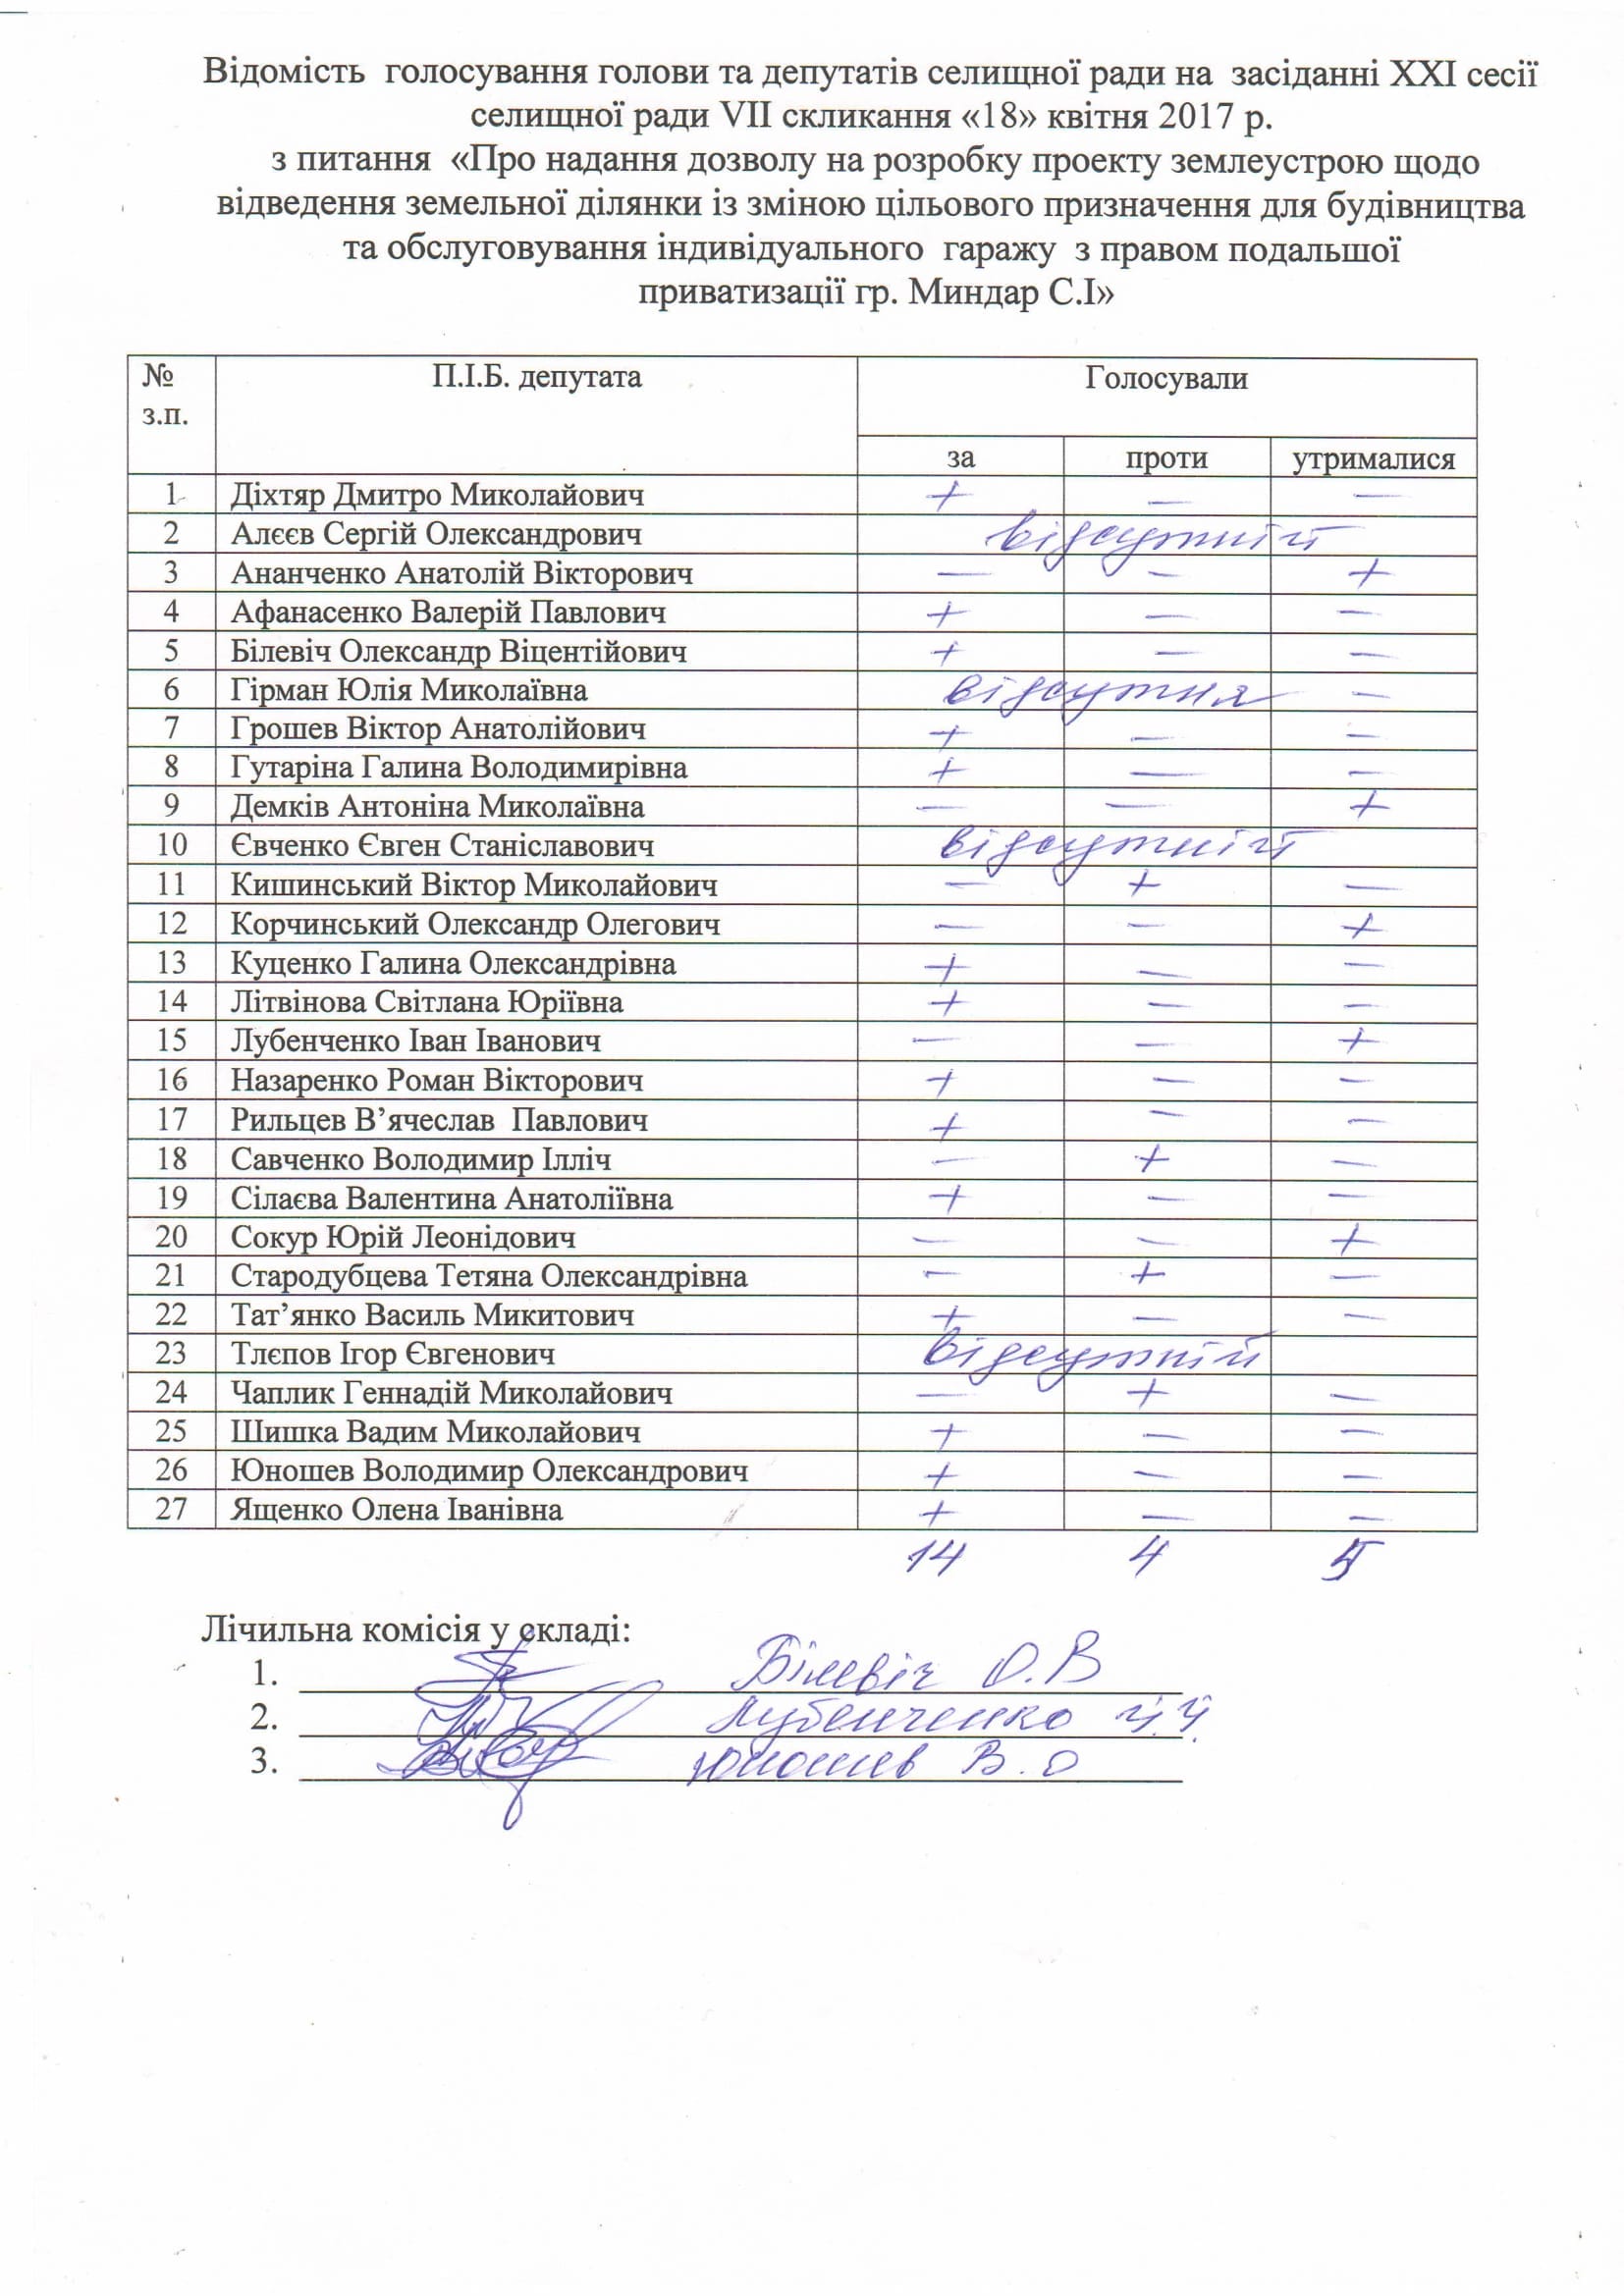 Відомість голосування голови та депутатів селищної ради на засіданні XXI сесії
селищної ради VII скликання «18» квітня 2017 р.
з питання «Про надання дозволу на розробку проекту землеустрою щодо
відведення земельної ділянки із зміною цільового призначення для будівництва
та обслуговування індивідуального гаражу з правом подальшої
приватизації гр. Миндар С.І»
№ з.п. П.І.Б. депутата Голосували
за проти утрималися
1 Діхтяр Дмитро Миколайович + — —
2 Алєєв Сергій Олександрович відсутній
3 Ананченко Анатолій Вікторович — — +
4 Афанасенко Валерій Павлович + — —
5 Білевіч Олександр Віцентійович + — —
6 Гірман Юлія Миколаївна відсутня —
7 Грошев Віктор Анатолійович + — —
8 Гутаріна Галина Володимирівна + — —
9 Демків Антоніна Миколаївна — — +
10 Євченко Євген Станіславович відсутній
11 Кишинський Віктор Миколайович — + —
12 Корчинський Олександр Олегович — — +
13 Куценко Галина Олександрівна + — —
14 Літвінова Світлана Юріївна + — —
15 Лубенченко Іван Іванович — — +
16 Назаренко Роман Вікторович + — —
17 Рильцев В’ячеслав Павлович + — —
18 Савченко Володимир Ілліч — + —
19 Сілаєва Валентина Анатоліївна + — —
20 Сокур Юрій Леонідович — — +
21 Стародубцева Тетяна Олександрівна — + —
22 Тат’янко Василь Микитович + — —
23 Тлєпов Ігор Євгенович відсутній
24 Чаплик Геннадій Миколайович — + —
25 Шишка Вадим Миколайович + — —
26 Юношев Володимир Олександрович + — —
27 Ященко Олена Іванівна + — —
14 4 5
Лічильна комісія у складі:
1. Білевіч О.В
2. Лубенченко І.І.
3. Юношев В.О